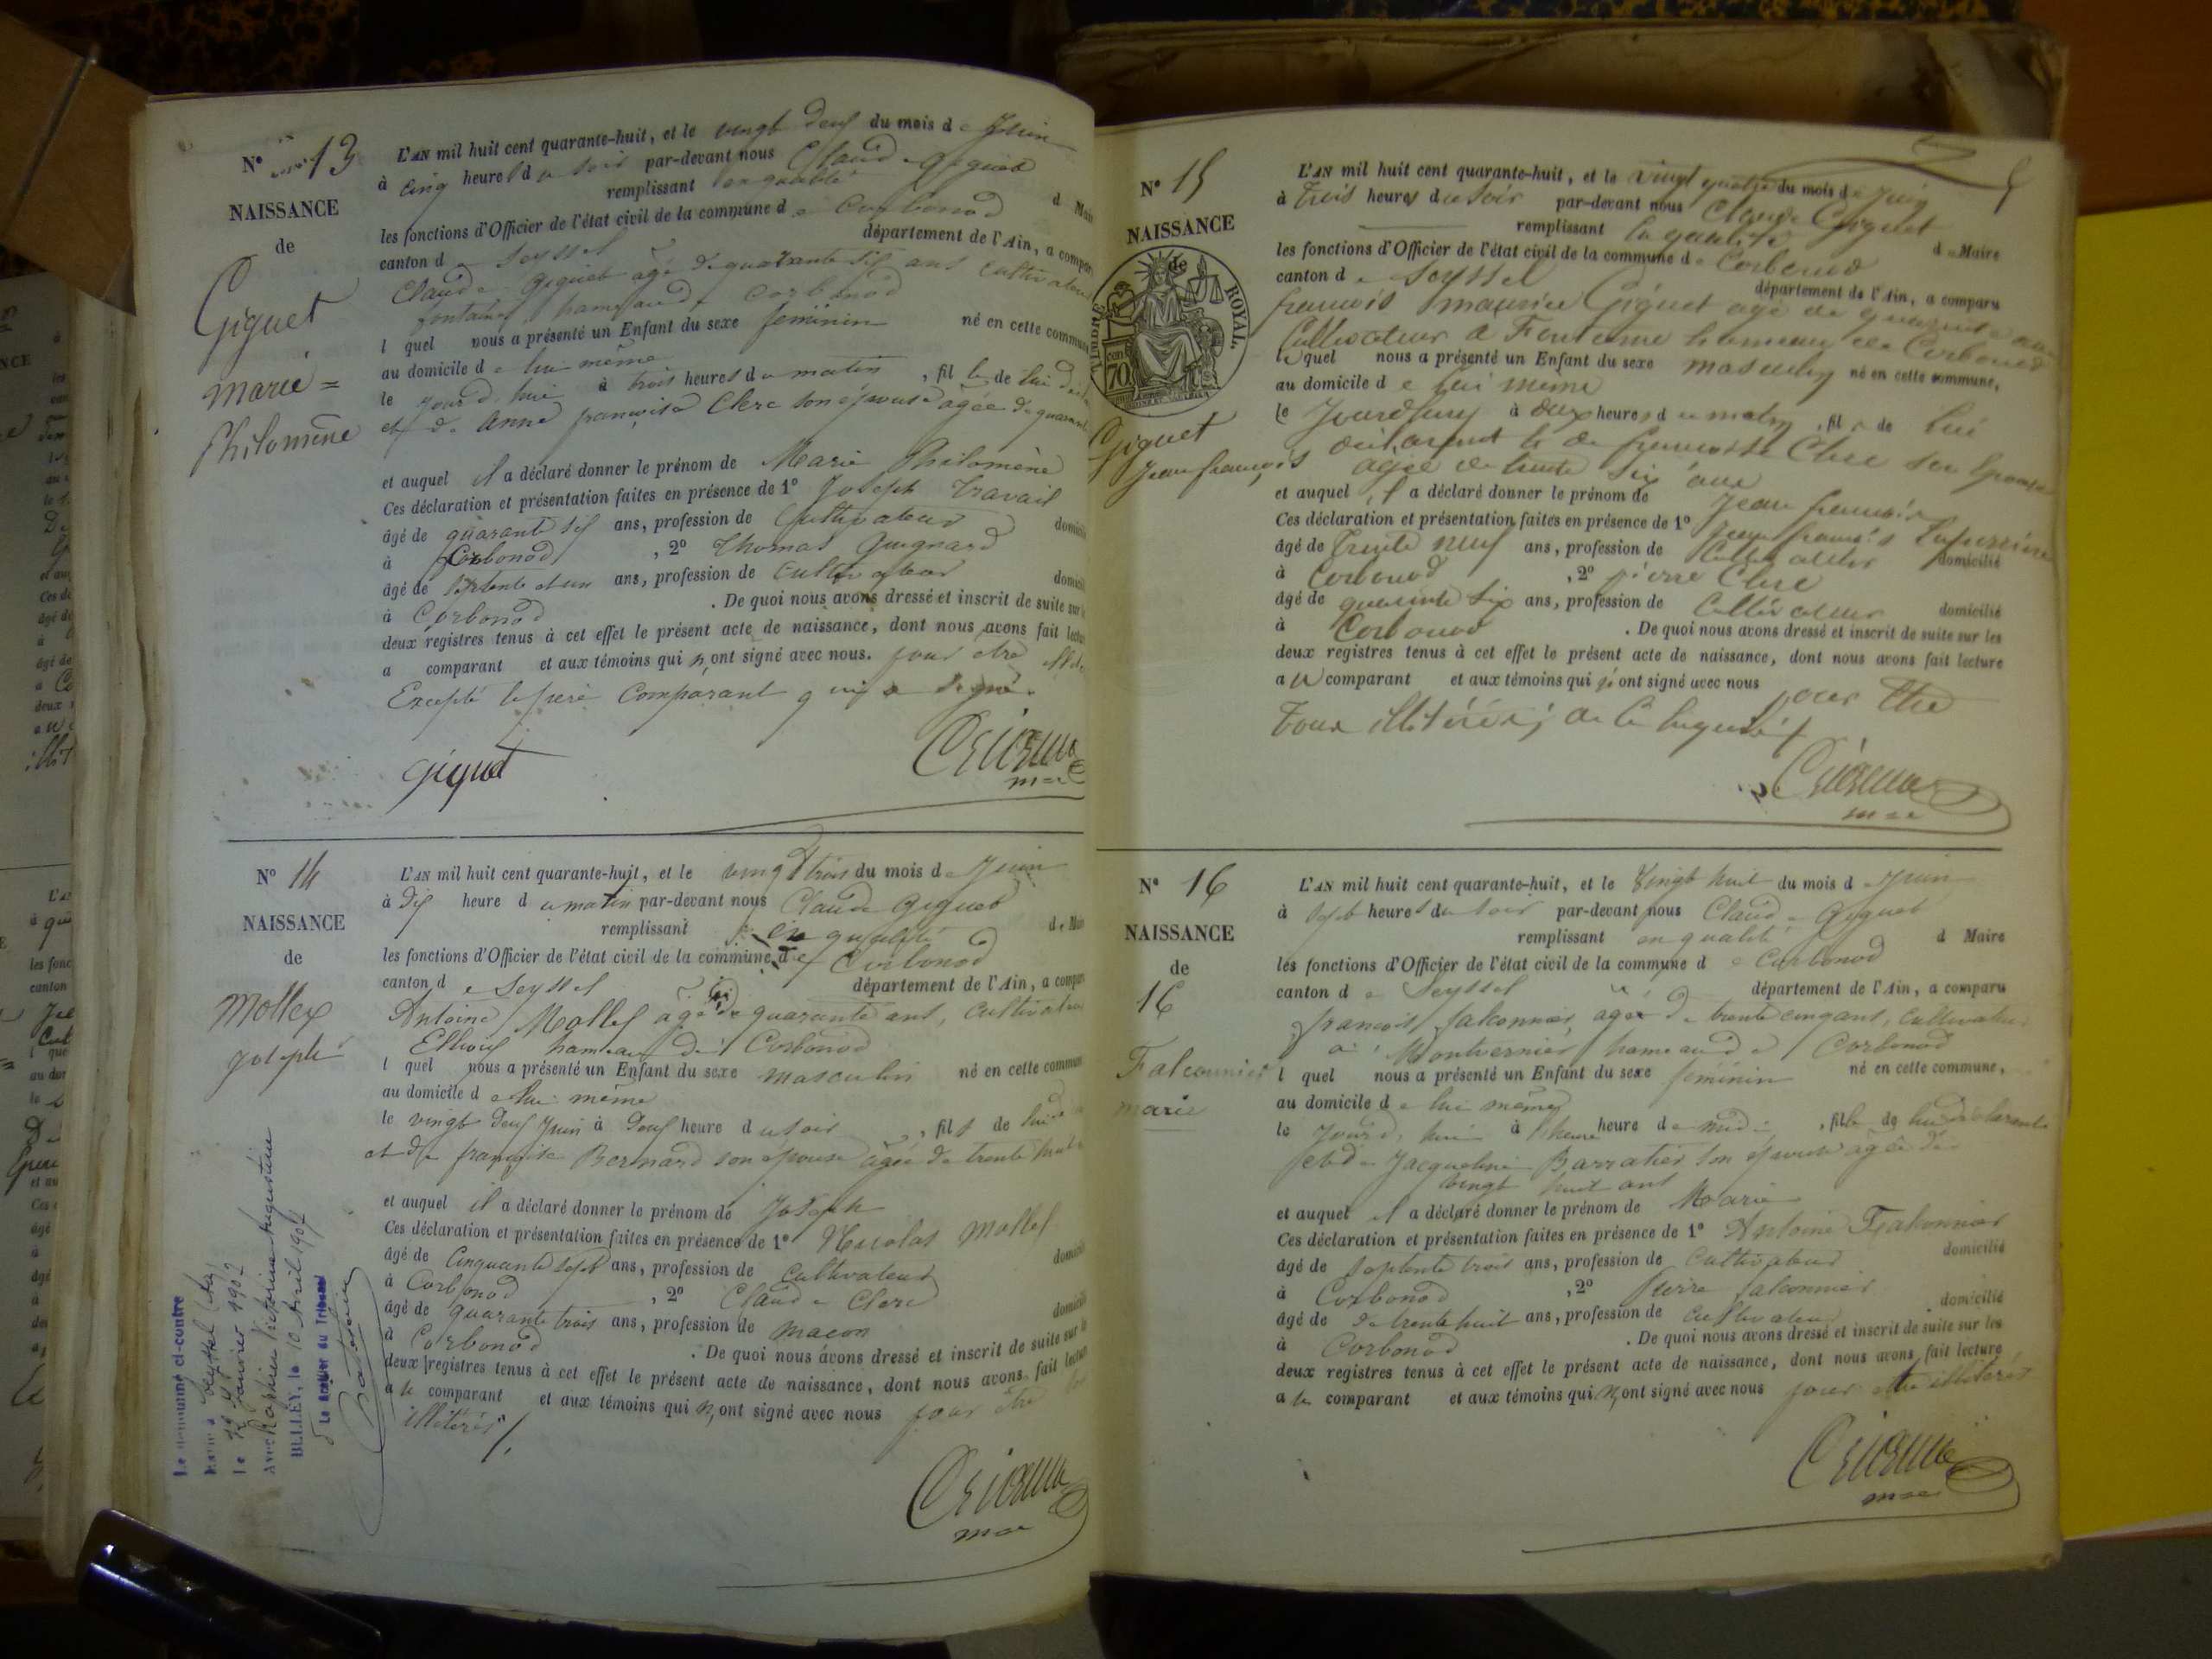 Nº 13
NAISSANCE
de
Giguet
marie =
Philomène
L'AN mil huit cent quarante-huit, et le vingt deux du mois de Juin
à cinq heures du soir par-devant nous Claude Giguet
remplissant en qualité d Mai
les fonctions d'Officier de l'état civil de la commune de Corbonod
canton de Seyssel département de l'Ain, a compar
Claude Giguet âgé de quarante six ans cultivateur
hameau de Corbonod
l quel nous a présenté un Enfant du sexe feminin né en cette commune
au domicile de lui même
le jourd'hui à trois heures du matin, fille de lui
et de Anne françoise Clerc son épouse agée de quarante
et auquel il a déclaré donner le prénom de Marie Philomène
Ces déclaration et présentation faites en présence de 1º Joseph Travail
âgé de quarante six ans, profession de Cultivateur domici
à Corbonod, 2º Thomas Guignard
âgé de septente et un ans, profession de cultivateur domicil
à Corbonod. De quoi nous avons dressé et inscrit de suite sur l
deux registres tenus à cet effet le présent acte de naissance, dont nous avons fait lectu
a comparant et aux témoins qui n'ont signé avec nous. pour etre
Excepté le pere Comparant qui a signé.
giguet
Nº 14
NAISSANCE
de
Mollex
joseph
L'AN mil huit cent quarante-huit, et le vingt trois du mois de Juin
à dix heure du matin par-devant nous Claude Giguet
remplissant en qualité de Mai
les fonctions d'Officier de l'état civil de la commune de Corbonod
canton de Seyssel département de l'Ain, a compar
Antoine Mollex âgé de quarante ans, cultivateur
hameau de Corbonod
l quel nous a présenté un Enfant du sexe masculin né en cette commun
au domicile de lui même
le vingt deux Juin à deux heure du soir, fils de lui
et de françoise Bernard son épouse âgée de trente huit
et auquel il a déclaré donner le prénom de Joseph
Ces déclaration et présentation faites en présence de 1º Nicolas Mollex
âgé de Cinquante sept ans, profession de cultivateur domicil
à Corbonod, 2º Claude Clerc
âgé de quarante trois ans, profession de macon domicili
à Corbonod. De quoi nous avons dressé et inscrit de suite sur l
deux registres tenus à cet effet le présent acte de naissance, dont nous avons fait lectur
a le comparant et aux témoins qui n'ont signé avec nous pour être
illitérés
Le nommé ci-contre
Marié à Seyssel (Ain)
le Janvier 1907
Avec Victorine Augustine
BELLEY, le 10 Avril 1907
Le Greffier du Tribunal
Nº 15
NAISSANCE
de
TIMBRE ROYAL
70 cent
Giguet
Jean françois
L'AN mil huit cent quarante-huit, et le vingt quatre du mois de juin
à trois heures du soir par-devant nous Claude Giguet
remplissant la qualité de Maire
les fonctions d'Officier de l'état civil de la commune de Corbonod
canton de Seyssel département de l'Ain, a comparu
francois maurice Giguet agé de quarante ans
Cultivateur a hameau de Corbonod
le quel nous a présenté un Enfant du sexe masculin né en cette commune,
au domicile de lui meme
le Jourdhuy à deux heures du matin, fils de lui
déclarant et de francoise Clerc son Epouse
agée de trente six ans
et auquel il a déclaré donner le prénom de Jean francois
Ces déclaration et présentation faites en présence de 1º Jean francois
âgé de trente neuf ans, profession de Cultivateur domicilié
à Corbonod, 2º pierre Clerc
âgé de quarante six ans, profession de Cultivateur domicilié
à Corbonod. De quoi nous avons dressé et inscrit de suite sur les
deux registres tenus à cet effet le présent acte de naissance, dont nous avons fait lecture
au comparant et aux témoins qui n'ont signé avec nous pour etre
tous illitérés
Nº 16
NAISSANCE
de
16
Falconnier
marie
L'AN mil huit cent quarante-huit, et le Vingt huit du mois d Juin
à sept heures du soir par-devant nous Claude Giguet
remplissant en qualité d Maire
les fonctions d'Officier de l'état civil de la commune de Corbonod
canton de Seyssel département de l'Ain, a comparu
françois falconnier, agé de trente cinq ans, cultivateur
à Montvernier hameau de Corbonod
l quel nous a présenté un Enfant du sexe féminin né en cette commune,
au domicile de lui même
le jourd'hui à 1 heure heure de midi, fille de lui déclarant
et de Jacqueline Barratier son épouse agée de
vingt huit ans
et auquel il a déclaré donner le prénom de Marie
Ces déclaration et présentation faites en présence de 1º Antoine Falconnier
âgé de septente trois ans, profession de cultivateur domicilié
à Corbonod, 2º Pierre falconnier
âgé de de trente huit ans, profession de cultivateur domicilié
à Corbonod. De quoi nous avons dressé et inscrit de suite sur les
deux registres tenus à cet effet le présent acte de naissance, dont nous avons fait lecture
a le comparant et aux témoins qui n'ont signé avec nous pour etre illitérés